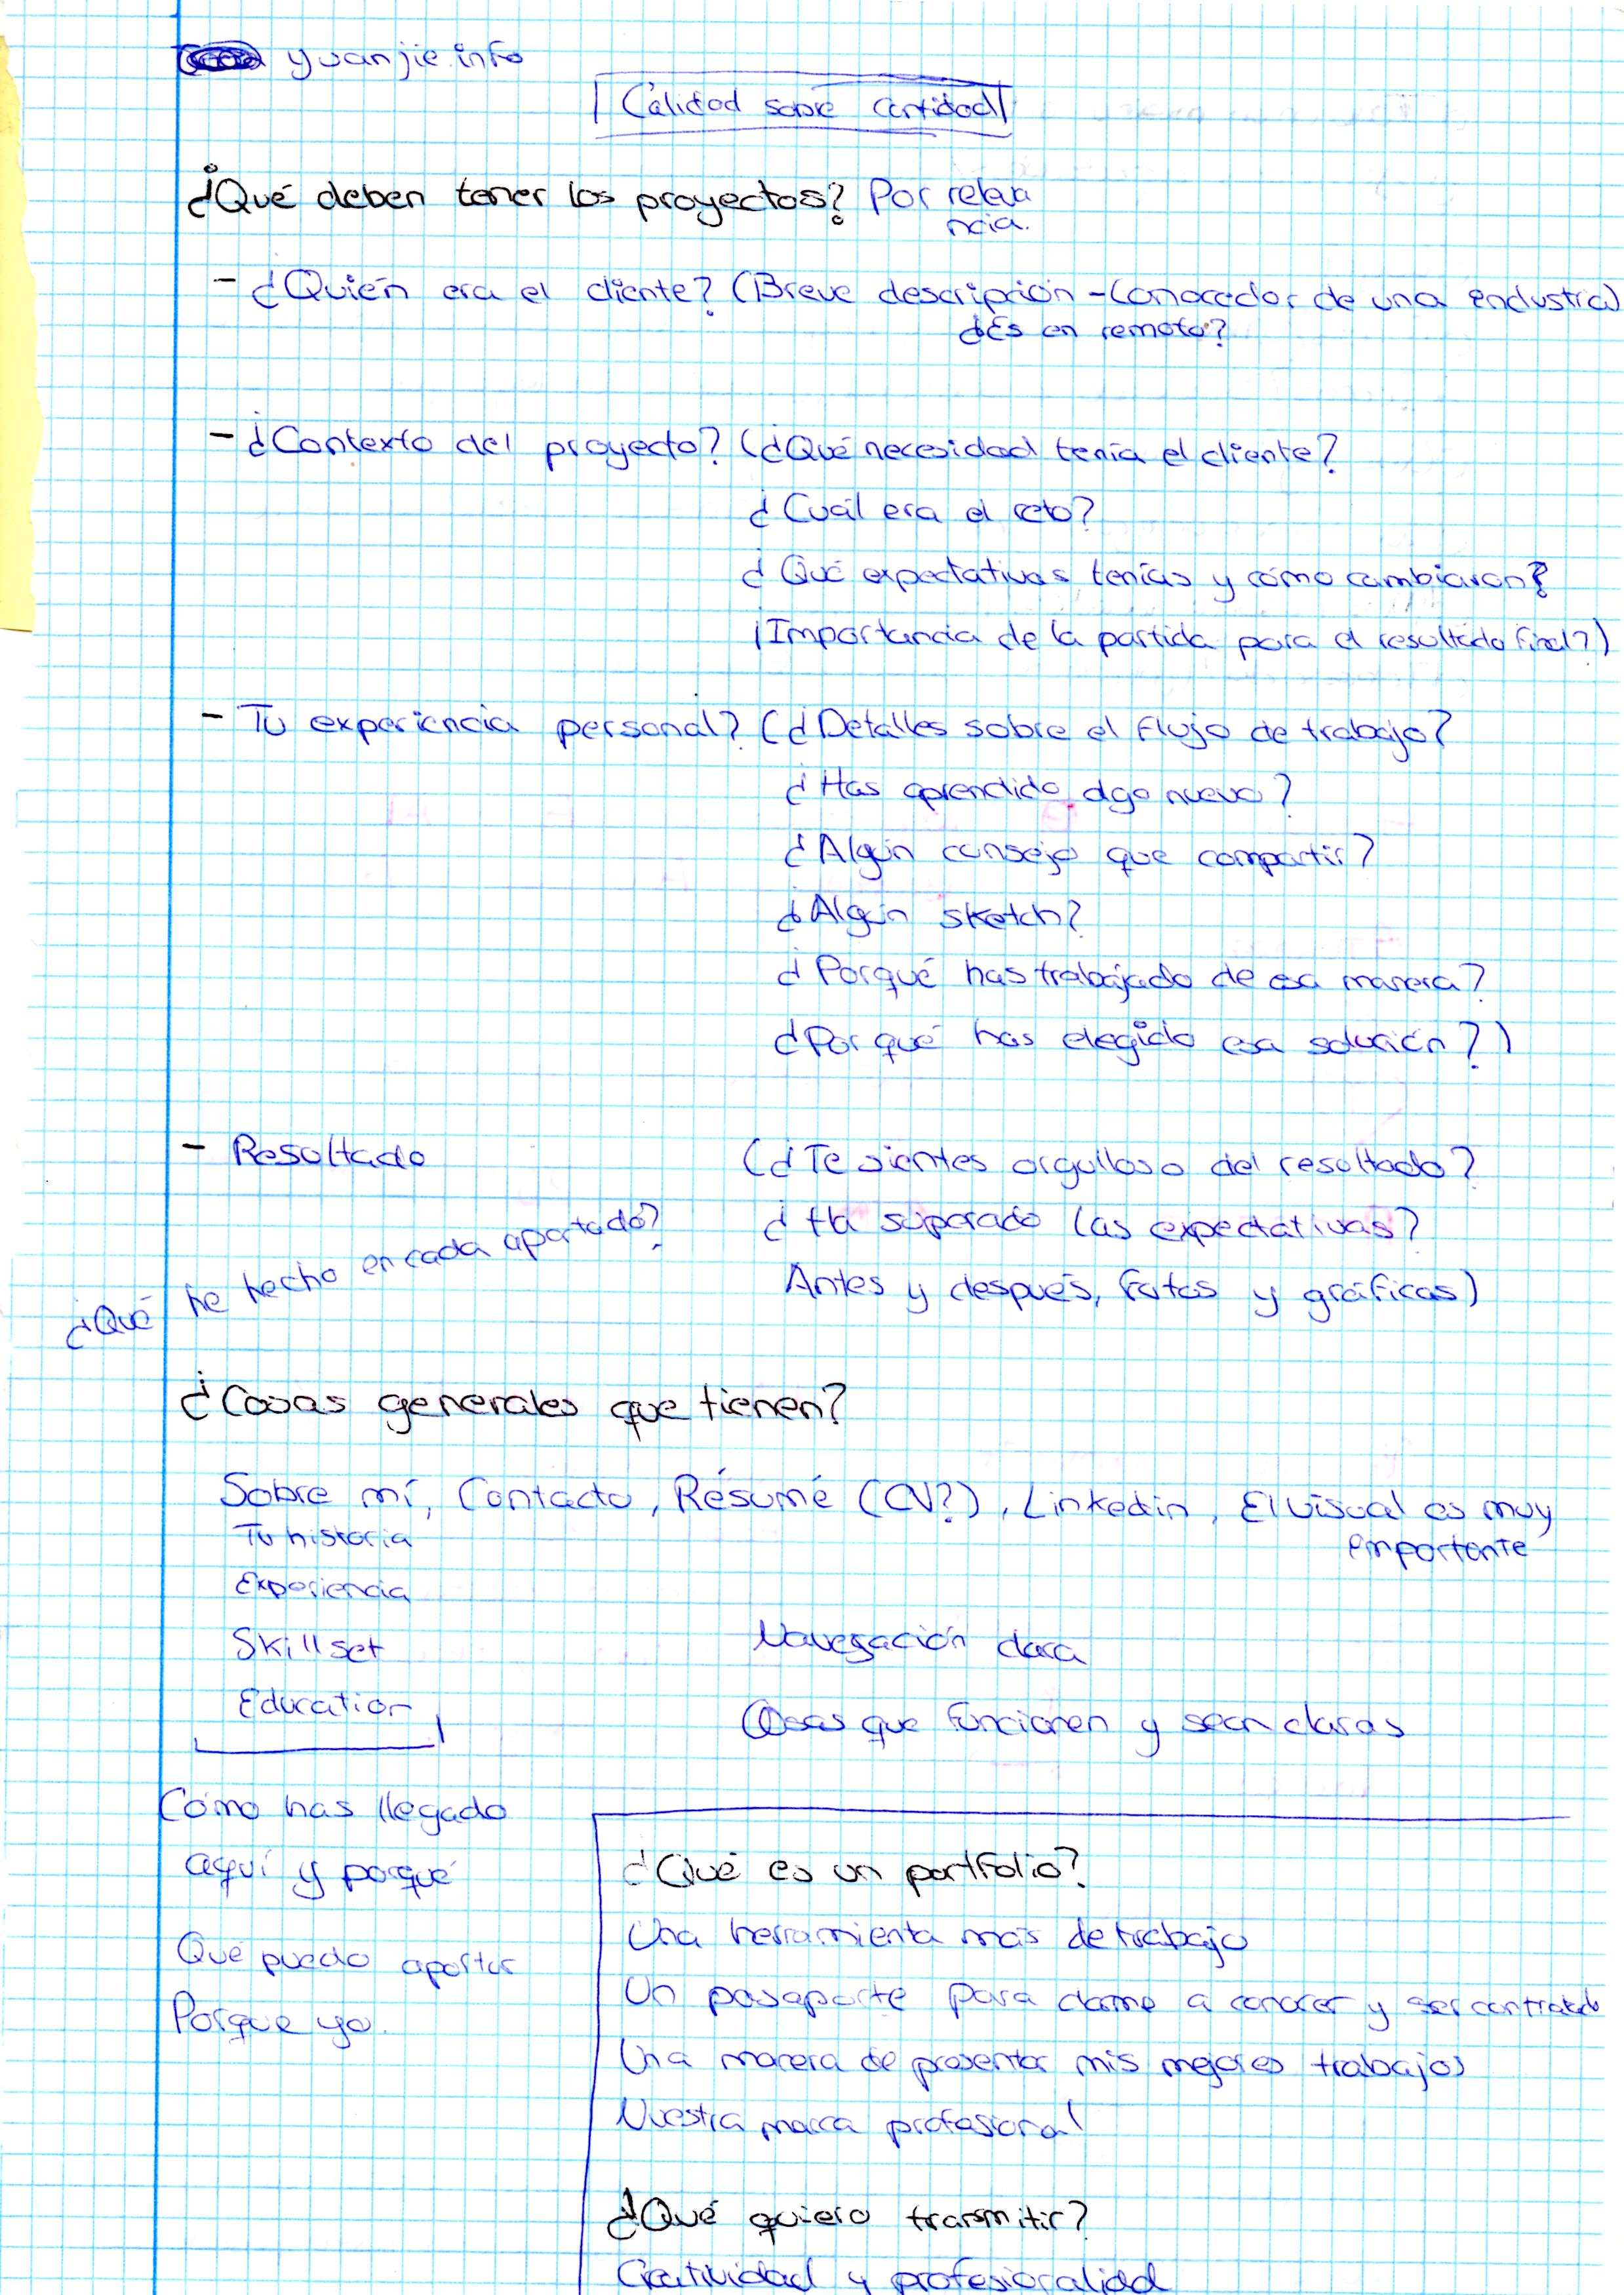 yuanjie.info
Calidad sobre cantidad
¿Qué deben tener los proyectos? Por releva
ncia.
- ¿Quién era el cliente? (Breve descripción - Conocedor de una industria)
¿Es en remoto?
- ¿Contexto del proyecto? (¿Qué necesidad tenía el cliente?
¿Cuál era el reto?
¿Qué expectativas tenías y cómo cambiaron?
¡Importancia de la partida para el resultado final?)
- Tu experiencia personal? (¿Detalles sobre el flujo de trabajo?
¿Has aprendido algo nuevo?
¿Algún consejo que compartir?
¿Algún sketch?
¿Porqué has trabajado de esa manera?
¿Por qué has elegido esa solución?)
- Resultado (¿Te sientes orgulloso del resultado?
¿Ha superado las expectativas?
Antes y después, fotos y gráficas)
¿Qué he hecho en cada apartado?
¿Cosas generales que tienen?
Sobre mí, Contacto, Résumé (CV?), Linkedin, El visual es muy
importante
Tu historia
Experiencia
Skill set
Navegación clara
Education
Cosas que funcionen y sean claras
Cómo has llegado
aquí y porqué
Qué puedo aportar
Porque yo.
¿Qué es un portfolio?
Una herramienta más de trabajo
Un pasaporte para darme a conocer y ser contratado
Una manera de presentar mis mejores trabajos
Nuestra marca profesional
¿Qué quiero transmitir?
Creatividad y profesionalidad